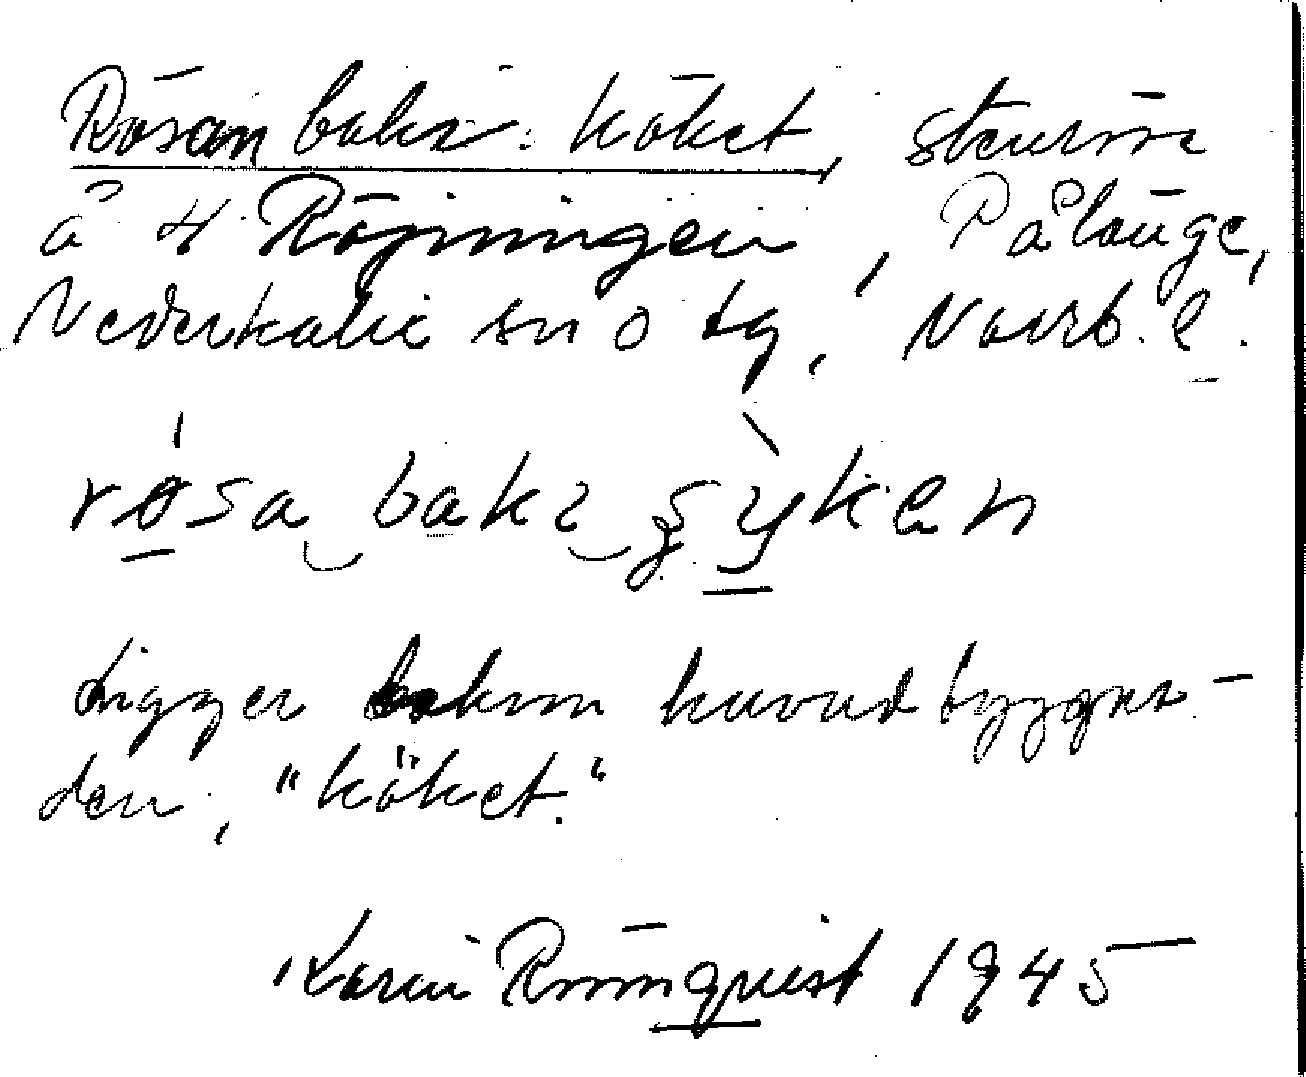 Rösan bakı köket, stenröse
å 4 Röjningen, Pålänge,
Nederkalix sn o tg, Norrb. l.
rösa bakı şyken
Ligger bakom huvudbyggna-
den, "köket."
Karin Rönnquist 1945